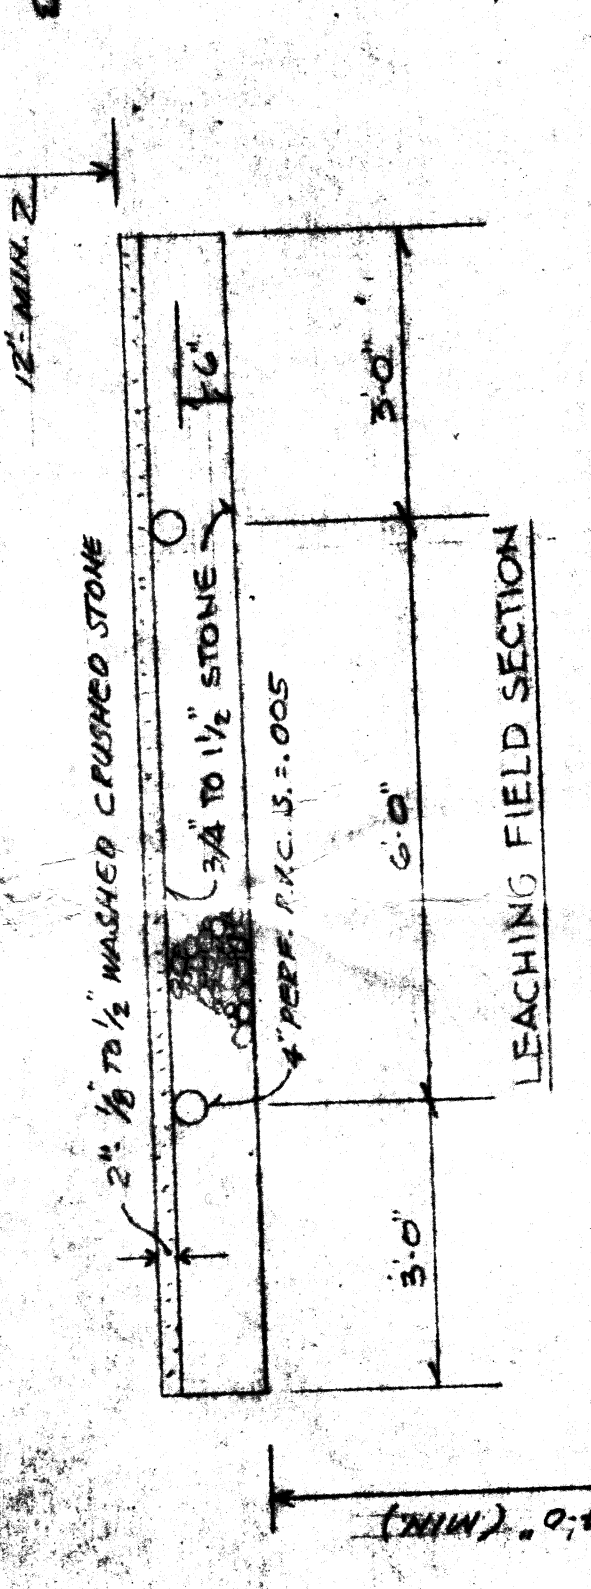 12" MIN. 2
2"- 1/8" TO 1/2" WASHED CRUSHED STONE
6"
3/4" TO 1 1/2" STONE
4" PERF. P.V.C. S.=.005
3'-0"
6'-0"
3'-0"
LEACHING FIELD SECTION
'-0" (MIN.)